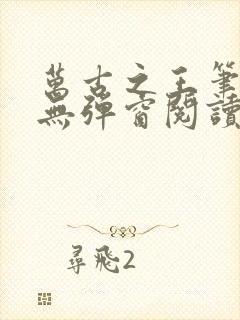 萬古之王筆
無彈窗閱讀
尋飛2